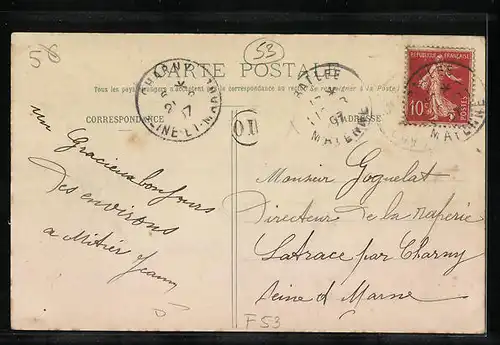 58
53
CARTE POSTALE
Tous les pays étrangers n'acceptent pas la correspondance au recto. Se renseigner à la Poste.
CORRESPONDANCE
ADRESSE
CHARNY
21
17
SEINE-ET-MARNE
OI
07
MAYENNE
RÉPUBLIQUE FRANÇAISE
10c
POSTES
MAYENNE
un Gracieux bonjours
des environs
a
Monsieur Goguelat
Directeur de la raperie
Latrace par Charny
Seine et Marne
F53